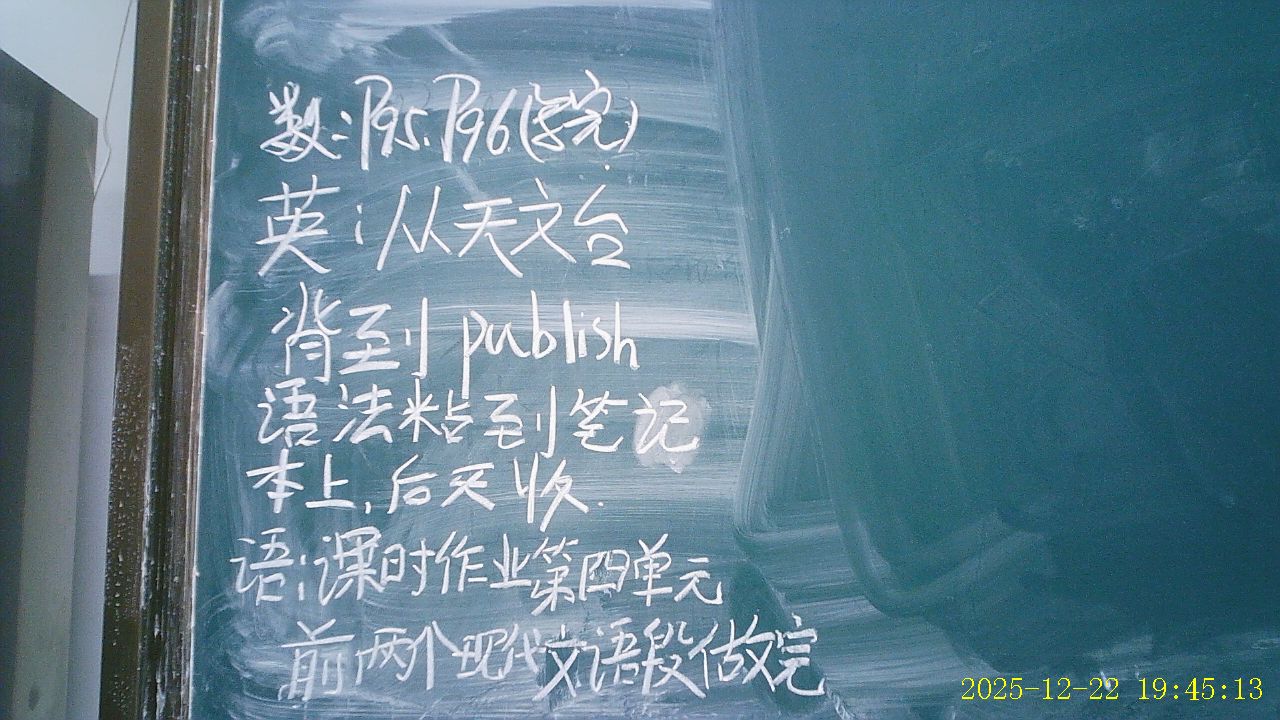 数:P95.P96(写完)
英:从天文台
背到publish
语法粘到笔记
本上,后天收.
语:课时作业第四单元
前两个现代文语段做完
2025-12-22 19:45:13